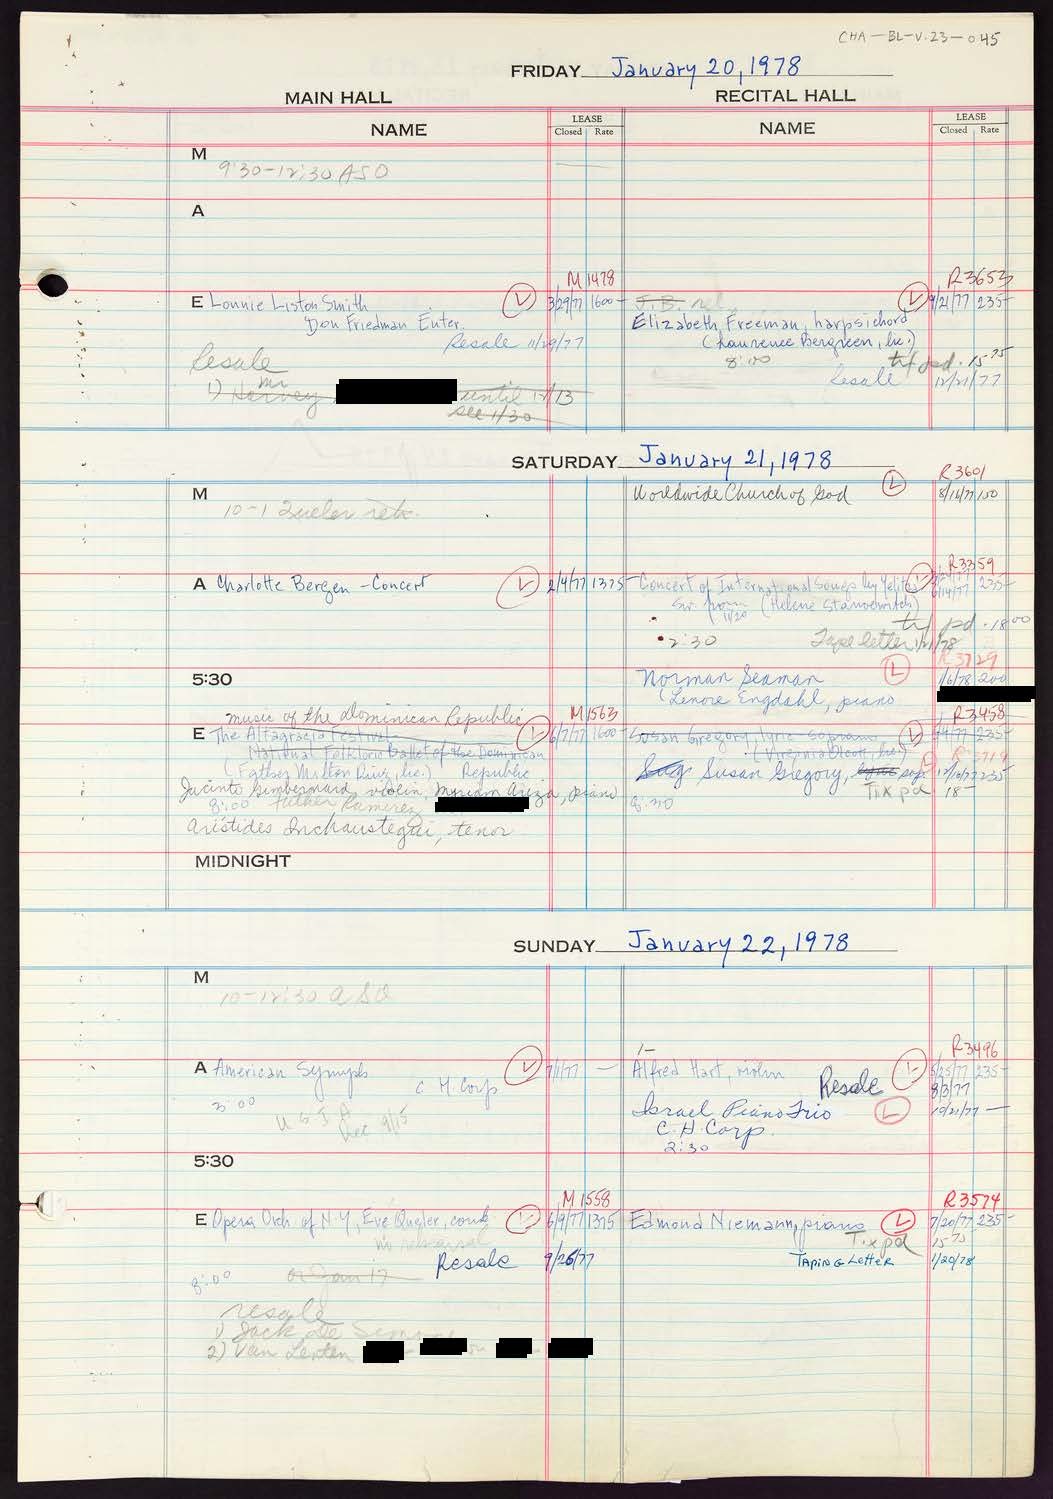 CHA-BL-V.23-045
FRIDAY January 20, 1978
MAIN HALL
RECITAL HALL
NAME
LEASE
Closed Rate
NAME
LEASE
Closed Rate
M
9:30-12:30 ASO
A
M1478
R3653
E Lonnie Liston Smith L 3/29/77 1600-
Don Friedman Enter.
Resale 11/29/77
J.B. rel. L 9/21/77 235-
Elizabeth Freeman, harpsichord
(Laurence Bergreen, lic.)
8:00 tx pd. 15.75
Resale 12/21/77
Resale
1) Harvey until 12/13
see 11/30
SATURDAY January 21, 1978
M
10-1 Queler reh.
R3601
Worldwide Church of God L 8/16/77 150
A Charlotte Bergen - Concert L 2/4/77 1375-
R3359
Concert of International Songs by L 235-
(Helene Stanoewitch) 6/14/77
11/20
tx pd. 18.00
2:30 Tape letter 1/21/78
5:30
R3729
Norman Seaman L 1/6/78 200
(Lenore Engdahl, piano
music of the Dominican Republic
M1563
E The Altagracia Festival L 6/7/77 1600-
National Folkloric Ballet of the Dominican
(Father Milton Ruiz, lic.) Republic
Jacinto Gimbernard violin, Miriam Ariza, piano
8:00 Father Ramirez
Aristides Inchaustegui, tenor
R3458
Susan Gregory, lyric soprano, L 235-
(Virginia Olcott, lic.)
Sug Susan Gregory, lyric sop. 235-
8:30 Tix pd 18-
MIDNIGHT
SUNDAY January 22, 1978
M
10-12:30 ASO
A American Symph L 7/1/77 -
C H Corp
3:00
Dec 9/15
R3496
1-
Alfred Hart, violin L 5/25/77 235-
Resale 8/3/77
Israel Piano Trio L 10/21/77 -
C.H. Corp.
2:30
5:30
M1558
E Opera Orch of N.Y., Eve Queler, cond L 6/9/77 1375
no rehearsal
Resale 9/26/77
8:00 or Jan 17
resale
1) Jack
2) Van
R3574
Edmond Niemann, piano L 7/20/77 235-
Tix pd 15.75
TAPING LETTER 1/20/78